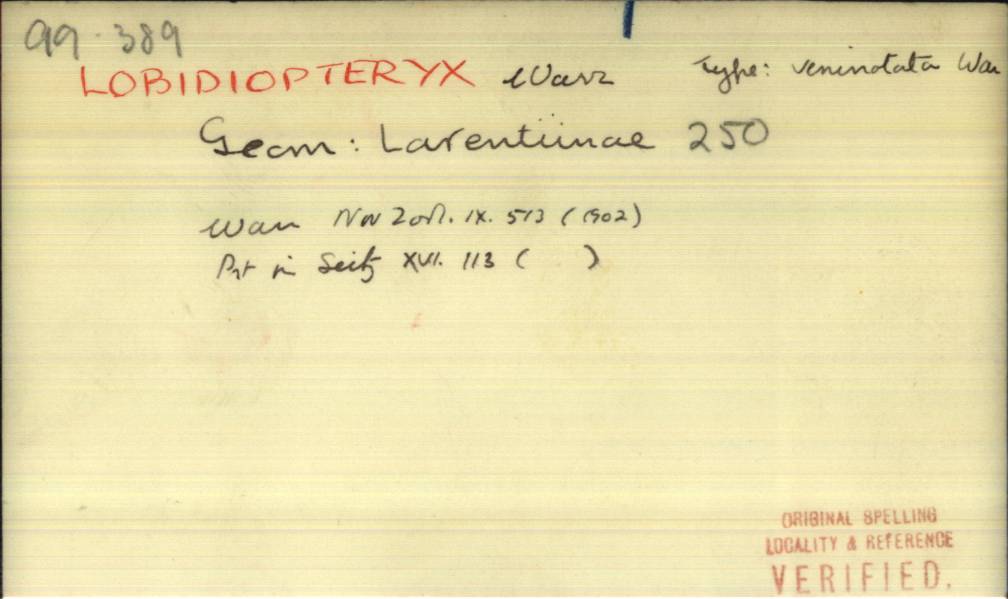 99.389
LOBIDIOPTERYX Warr Type: veninotata War
Geom: Larentiinae 250
Warr Nov Zool. IX. 513 (1902)
Prt in Seitz XVI. 113 ( )
ORIGINAL SPELLING
LOCALITY & REFERENCE
VERIFIED.